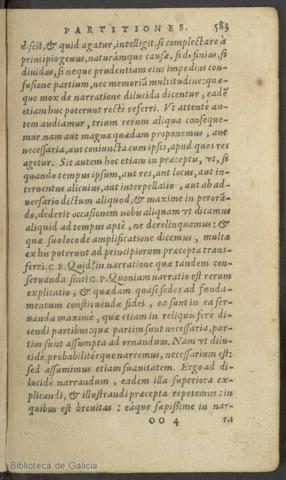 PARTITIONES. 583
d. scit, & quid agatur, intelligit. si complectare à
principio genus, naturámque causæ, si definias, si
diuidas, si neque prudentiam eius impedias con-
fusione partium, nec memoriã multitudine: quæ-
que mox de narratione dilucida dicentur, eadẽ
etiam huc poterunt rectè referri. Vt attentè an-
tem audiamur, trium rerum aliqua conseque-
mur nam aut magna quædam proponemus, aut
necessaria, aut coniuncta cum ipsis, apud quos res
agetur. Sit autem hoc etiam in præceptis, vt, si
quando tempus ipsum, aut res, aut locus, aut in-
teruentus alicuius, aut interpellatio, aut ab ad-
uersario dictum aliquod, & maxime in perorã-
do, dederit occasionem nobis aliquam vt dicamus
aliquid ad tempus aptè, ne derelinquamus: &
quæ suo loco de amplificatione dicemus, multa
ex his poterunt ad principiorum præcepta trans-
ferri. C.F. Quid? in narratione quæ tandem con-
seruanda sunt? C.P. Quoniam narratio est rerum
explicatio, & quædam quasi sedes ac funda-
mentum constituendæ fidei, ea sunt in ea ser-
uanda maximè, quæ etiam in reliquis ferè di-
cendi partibus: quæ partim sunt necessaria, par-
tim sunt assumpta ad ornandum. Nam vt dilu-
cidè, probabilitérque narremus, necessarium est:
sed assumimus etiam suauitatem. Ergo ad di-
lucidè narrandum, eadem illa superiora ex-
plicandi, & illustrandi præcepta repetemus: in
quibus est breuitas: eáque sæpissime in nar-
OO 4 ra
Biblioteca de Galicia